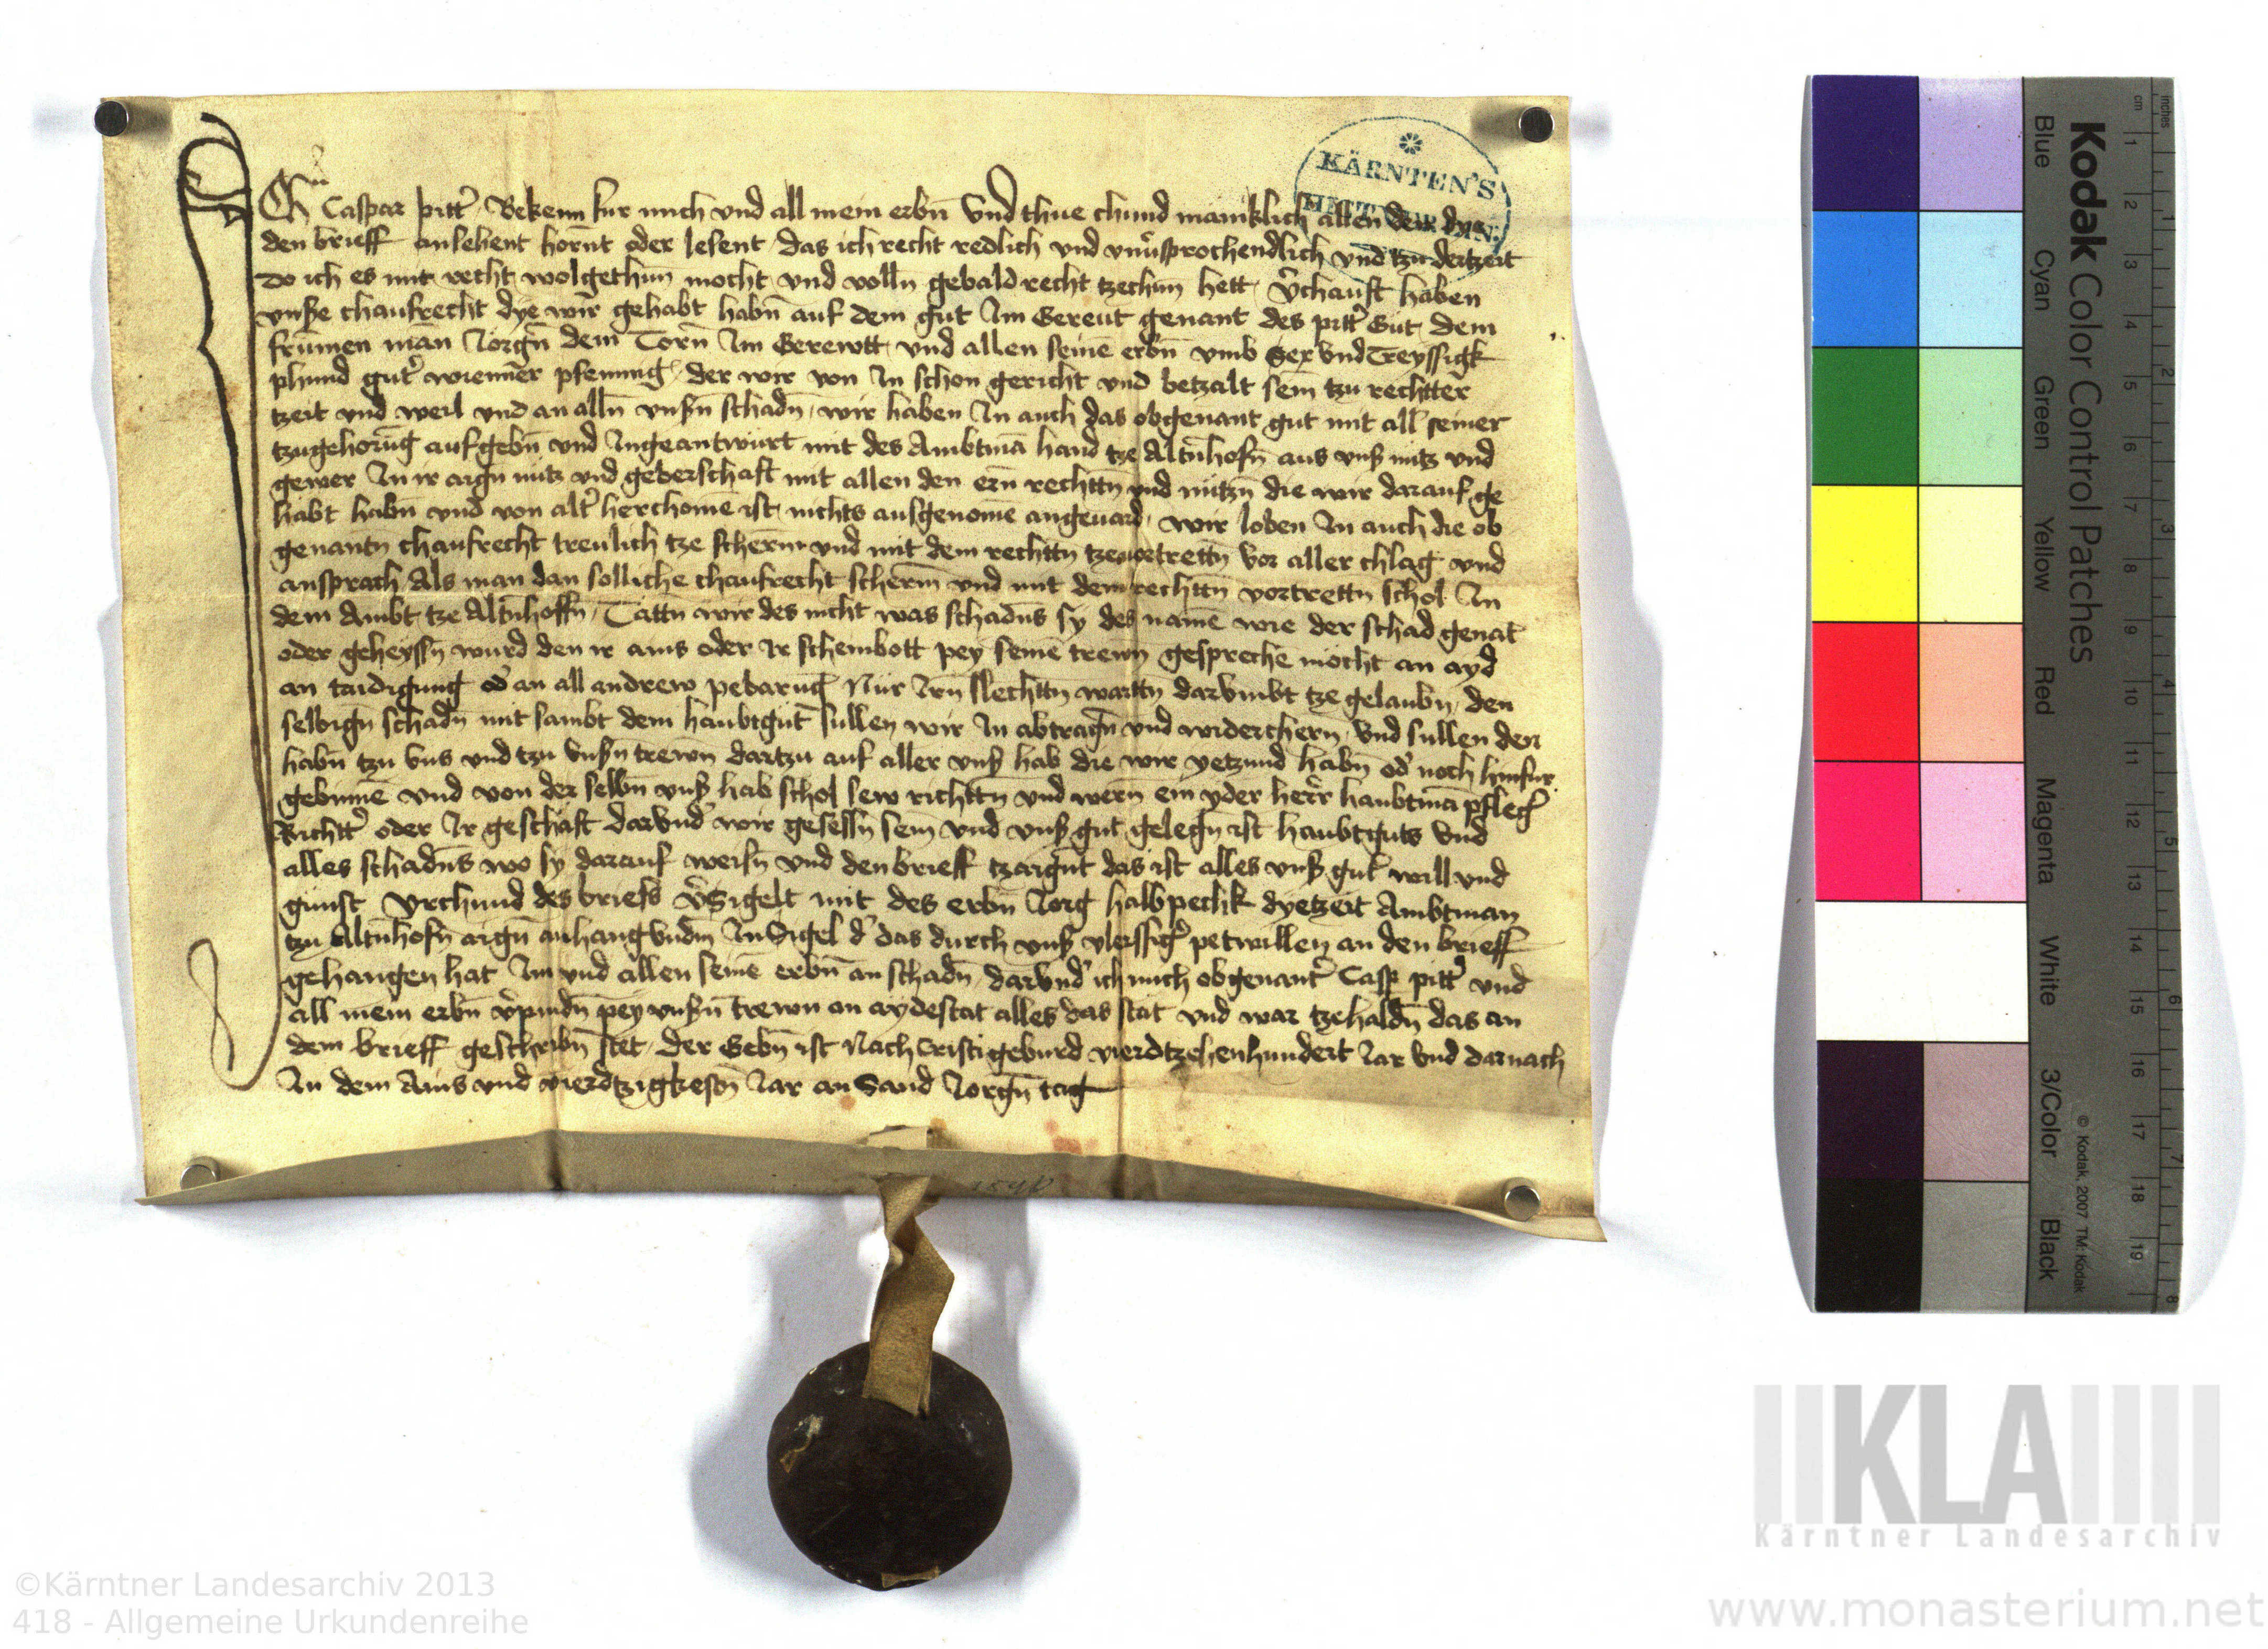 Ich Caspar pittˀ Bekenn fur mich vnd all mein erbn̄ Vnd thue chund mainklich allen den dys
den brieff ansehent horn̄t oder lesent das ich recht redlich vnd vnuˀsprochendlich vnd tzu dertzeit
do ich es mit recht wolgethun mocht vnd volln̄ gebald recht tzethun hett vˀchauft haben
vnsˀe chaufrecht dye wir gehabt habn̄ auf dem gut Im Gereut genant des pittˀ Gut dem
frumen man̄ Jorgn̄ dem Torn̄ Im Gerewtt vnd allen seinē erbn̄ vmb Sex vnd Treyssigk
phund gutˀ wienner pfening der wir von In schon gericht vnd betzalt sein tzu rechtter
tzeit vnd weil vnd an alln̄ vnsˀn schadn̄ wir haben In auch das obgenant gut mit all seiner
tzugehorūg aufgebn̄ vnd Ingeantwurt mit des Ambtmā hand tze Altn̄hofn̄ aus vnsˀ nutz vnd
gewer In ir aign̄ nutz vnd geberschaft mit allen den ern̄ rechttn̄ vnd nutzn̄ die wir darauf ge
habt habn̄ vnd von altˀ herchomē ist nichts ausgenomē angeuard wir loben In auch die ob
genantn̄ chaufrecht treulich tze scherm̄ vnd mit dem rechttn̄ tzeuortrettn̄ vor aller chlag vnd
ansprach Als man dan solliche chaufrecht scherm̄ vnd mit dem rechttn̄ vortrettn̄ schol In
dem Ambt tze Altn̄hoffn̄ Tattn̄ wir des nicht was schadn̄s sy des namē wie der schad genāt
oder geheyssn̄ wurd den ir ains oder Ir schembott pey seinē trewn̄ gesprechē mocht an ayd
an taidigung odˀ an all andrew pebarūg Nur Irn̄ slechttn̄ warttn̄ darvmbt tze gelaubn̄ den
selbign̄ schadn̄ mit sambt dem haubtgut sullen wir In abtragn̄ vnd widerchern̄ Vnd sullen den
habn̄ tzu vns vnd tzu vnsˀn trewn̄ dartzu auf aller vnsˀ hab die wir yetzund habn̄ odˀ noch hinfur
gebunnē vnd von der selbn̄ vnsˀ hab schol sew richttn̄ vnd wern̄ ein yder herˀr haubtmā pflegˀ
Richttˀ oder Ir geschaft darvndˀ wir gesessn̄ sein vnd vnsˀ gut gelegn̄ ist haubtguts Vnd
alles schadn̄s wo sy darauf weisn̄ vnd den brieff tzaign̄t das ist alles vnsˀ gut will vnd
gunst Vrchund des briefs vˀSigelt mit des erbn̄ Jorg halbpechk dyetzeit Ambtman
tzu Altn̄hofn̄ aign̄ anhangvndm̄ InSigel dˀ das durch vnsˀ vleissigˀ petwillen an den brieff
gehangen hat Im vnd allen seinē erbn̄ an schadn̄ darvndˀ ich mich obgenantˀ Caspˀ pittˀ vnd
all mein erbn̄ vˀpindn̄ pey vnsˀn trewn an aydestat alles das stat vnd war tzehaldn̄ das an
dem brieff geschribn̄ stet der Gebn̄ ist Nach Cristi geburd vierdtzehenhundert Jar Vnd darnach
In dem Ains vnd vierdtzigkesdn̄ Jar an Sand Jorgn̄ tag
KÄRNTEN'S
Kodak Color Control Patches
Blue Cyan Green Yellow Red Magenta White 3/Color Black
© Kodak, 2007 TM: Kodak
cm 1 2 3 4 5 6 7 8 9 10 11 12 13 14 15 16 17 18 19
inches 1 2 3 4 5 6 7 8
KLA
Kärntner Landesarchiv
©Kärntner Landesarchiv 2013
418 - Allgemeine Urkundenreihe
www.monasterium.net